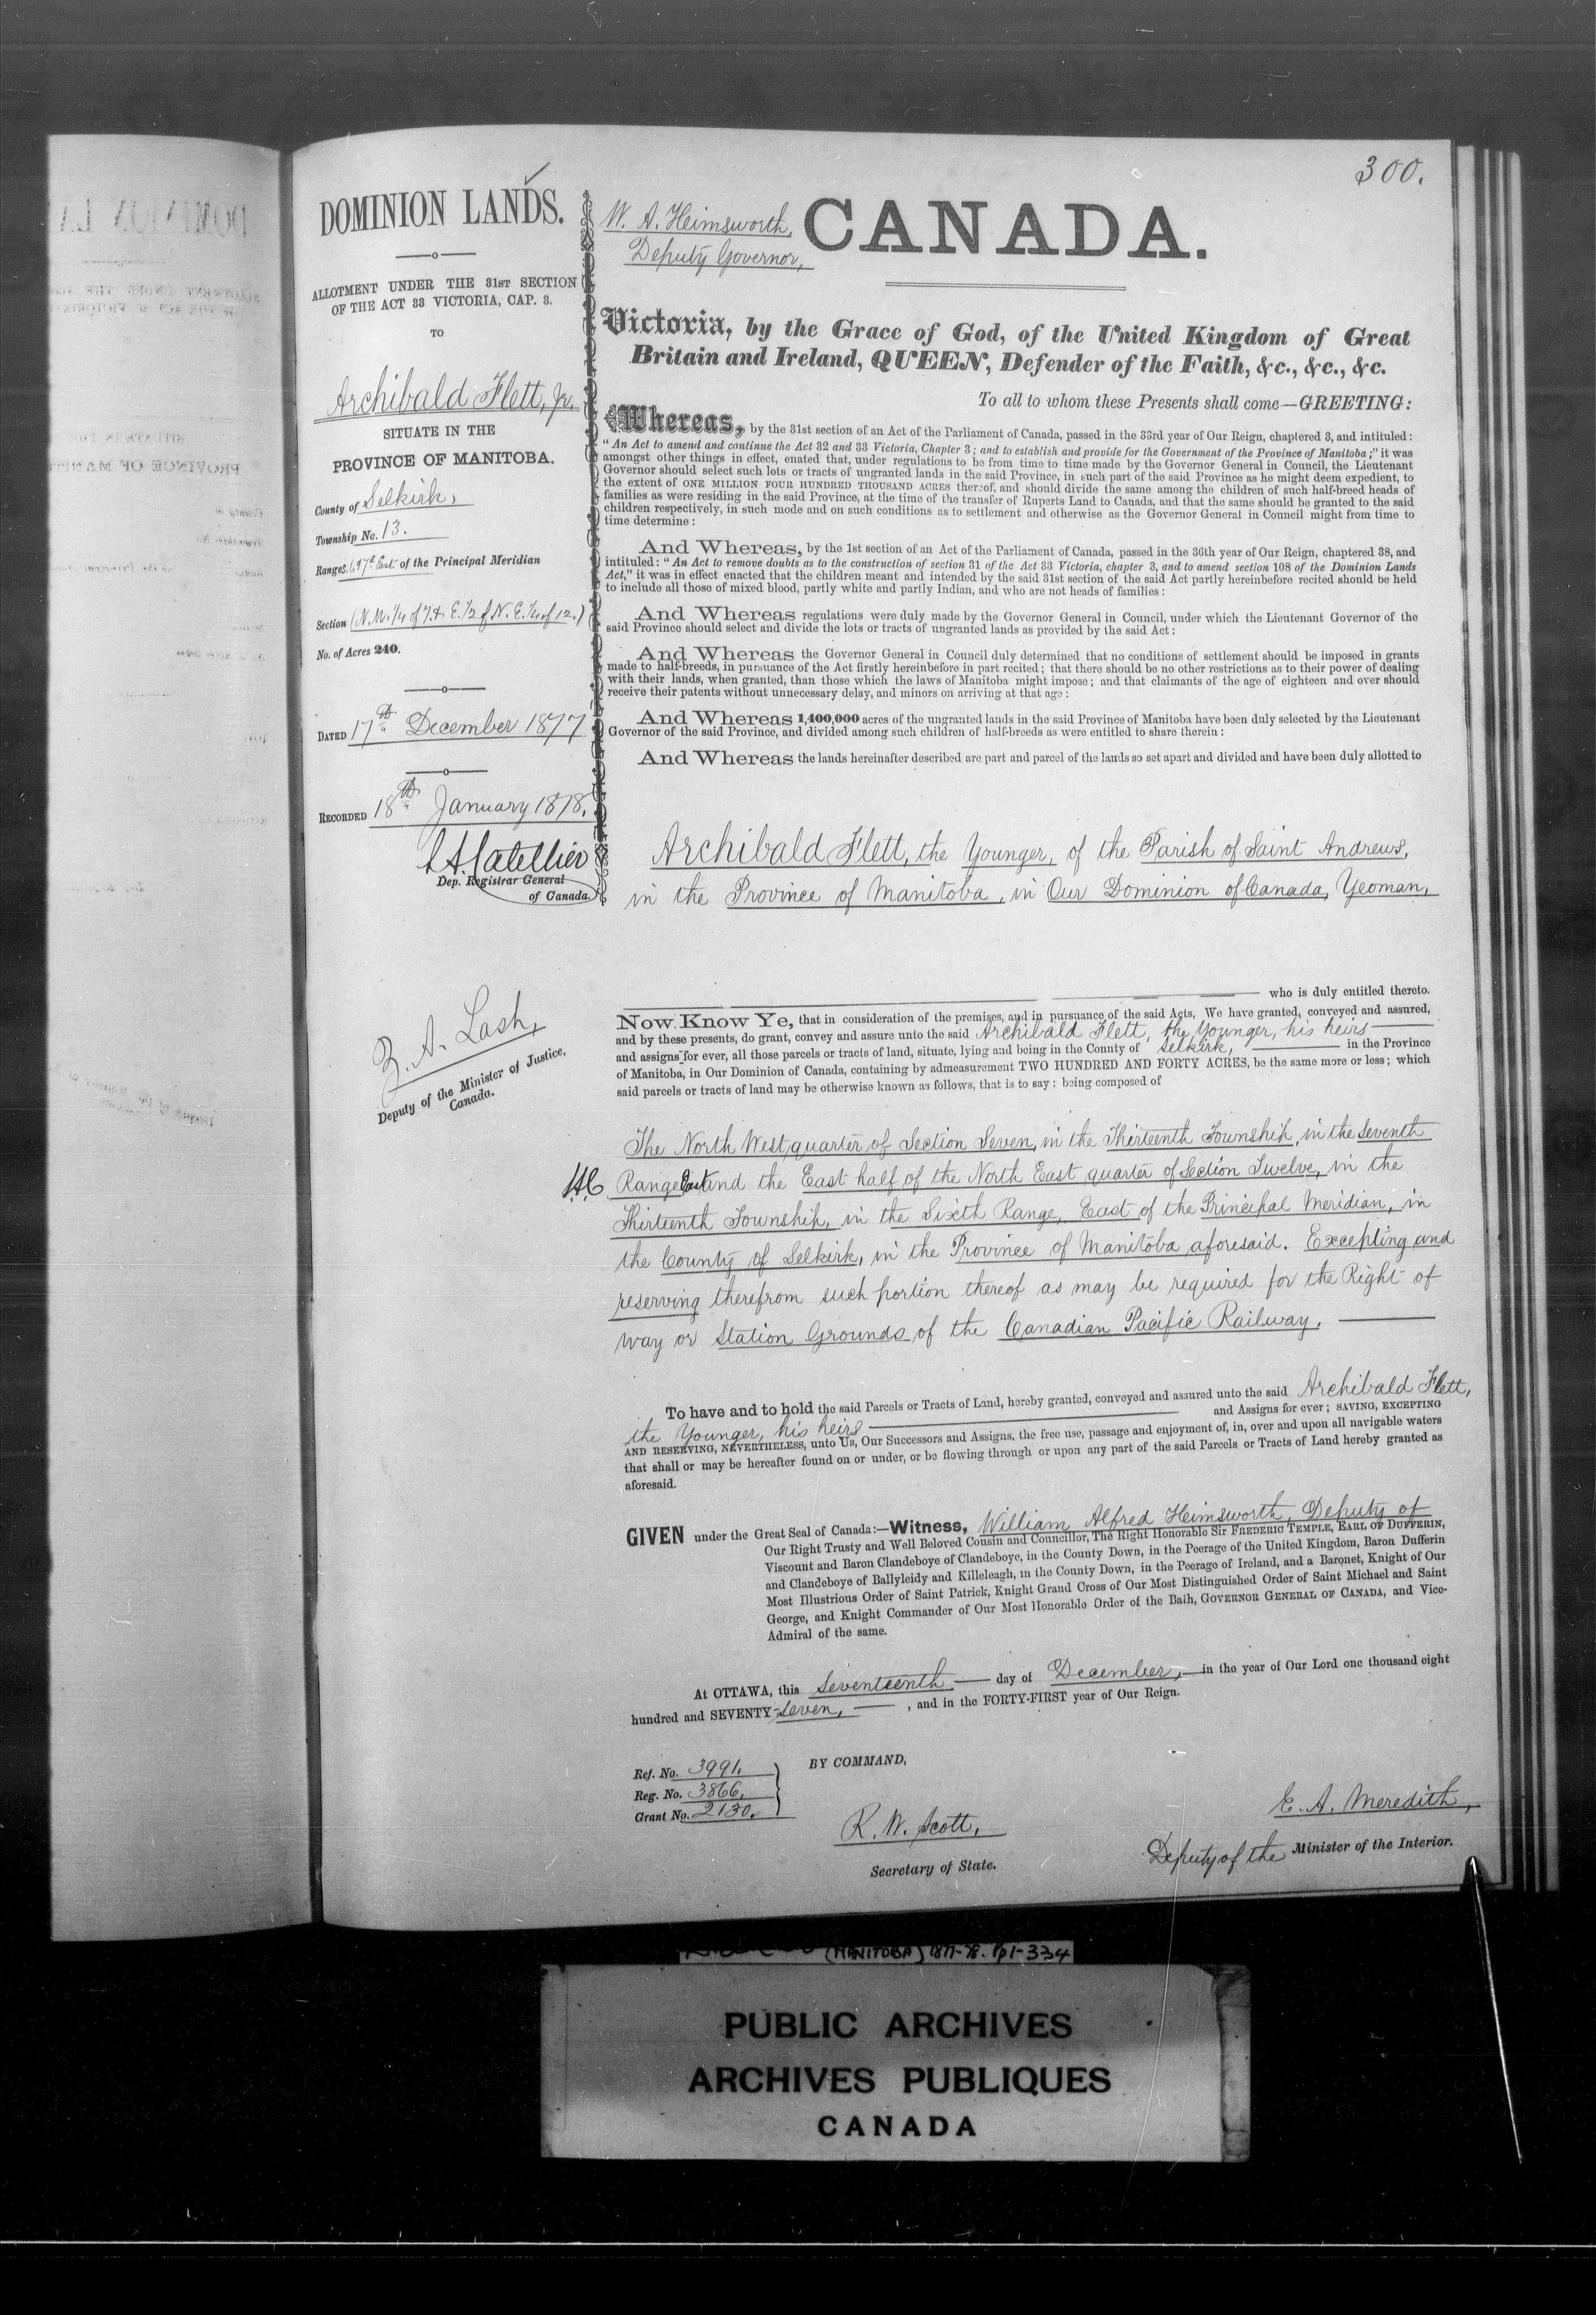 300.
DOMINION LANDS.
ALLOTMENT UNDER THE 31ST SECTION
OF THE ACT 33 VICTORIA, CAP. 3.
TO
Archibald Flett, Jr.
SITUATE IN THE
PROVINCE OF MANITOBA.
County of Selkirk,
Township No. 13.
Ranges 6 & 7th East of the Principal Meridian
Section (N.W. 1/4 of 7. & E. 1/2 of N. E. 1/4 of 12.)
No. of Acres 240.
DATED 17th December 1877
RECORDED 18th January 1878.
Dep. Registrar General
of Canada.
Z. A. Lash,
Deputy of the Minister of Justice,
Canada.
W. A. Heimsworth,
Deputy Governor,
CANADA.
Victoria, by the Grace of God, of the United Kingdom of Great
Britain and Ireland, QUEEN, Defender of the Faith, &c., &c., &c.
To all to whom these Presents shall come—GREETING:
Whereas, by the 31st section of an Act of the Parliament of Canada, passed in the 33rd year of Our Reign, chaptered 3, and intituled:
"An Act to amend and continue the Act 32 and 33 Victoria, Chapter 3; and to establish and provide for the Government of the Province of Manitoba;" it was
amongst other things in effect, enated that, under regulations to be from time to time made by the Governor General in Council, the Lieutenant
Governor should select such lots or tracts of ungranted lands in the said Province, in such part of the said Province as he might deem expedient, to
the extent of ONE MILLION FOUR HUNDRED THOUSAND ACRES thereof, and should divide the same among the children of such half-breed heads of
families as were residing in the said Province, at the time of the transfer of Ruperts Land to Canada, and that the same should be granted to the said
children respectively, in such mode and on such conditions as to settlement and otherwise as the Governor General in Council might from time to
time determine:
And Whereas, by the 1st section of an Act of the Parliament of Canada, passed in the 36th year of Our Reign, chaptered 38, and
intituled: "An Act to remove doubts as to the construction of section 31 of the Act 33 Victoria, chapter 3, and to amend section 108 of the Dominion Lands
Act," it was in effect enacted that the children meant and intended by the said 31st section of the said Act partly hereinbefore recited should be held
to include all those of mixed blood, partly white and partly Indian, and who are not heads of families:
And Whereas regulations were duly made by the Governor General in Council, under which the Lieutenant Governor of the
said Province should select and divide the lots or tracts of ungranted lands as provided by the said Act:
And Whereas the Governor General in Council duly determined that no conditions of settlement should be imposed in grants
made to half-breeds, in pursuance of the Act firstly hereinbefore in part recited; that there should be no other restrictions as to their power of dealing
with their lands, when granted, than those which the laws of Manitoba might impose; and that claimants of the age of eighteen and over should
receive their patents without unnecessary delay, and minors on arriving at that age:
And Whereas 1,400,000 acres of the ungranted lands in the said Province of Manitoba have been duly selected by the Lieutenant
Governor of the said Province, and divided among such children of half-breeds as were entitled to share therein:
And Whereas the lands hereinafter described are part and parcel of the lands so set apart and divided and have been duly allotted to
Archibald Flett, the Younger, of the Parish of Saint Andrews,
in the Province of Manitoba, in Our Dominion of Canada, Yeoman,
who is duly entitled thereto.
Now Know Ye, that in consideration of the premises, and in pursuance of the said Acts, We have granted, conveyed and assured,
and by these presents, do grant, convey and assure unto the said Archibald Flett, the Younger, his heirs
and assigns for ever, all those parcels or tracts of land, situate, lying and being in the County of Selkirk, in the Province
of Manitoba, in Our Dominion of Canada, containing by admeasurement TWO HUNDRED AND FORTY ACRES, be the same more or less; which
said parcels or tracts of land may be otherwise known as follows, that is to say: being composed of
The North West quarter of Section Seven, in the Thirteenth Township, in the Seventh
Range East and the East half of the North East quarter of Section Twelve, in the
Thirteenth Township, in the Sixth Range, East of the Principal Meridian, in
the County of Selkirk, in the Province of Manitoba aforesaid. Excepting and
reserving therefrom such portion thereof as may be required for the Right of
way or Station Grounds of the Canadian Pacific Railway.
To have and to hold the said Parcels or Tracts of Land, hereby granted, conveyed and assured unto the said Archibald Flett,
the Younger, his heirs and Assigns for ever; SAVING, EXCEPTING
AND RESERVING, NEVERTHELESS, unto Us, Our Successors and Assigns, the free use, passage and enjoyment of, in, over and upon all navigable waters
that shall or may be hereafter found on or under, or be flowing through or upon any part of the said Parcels or Tracts of Land hereby granted as
aforesaid.
GIVEN under the Great Seal of Canada:—Witness, William Alfred Heimsworth, Deputy of
Our Right Trusty and Well Beloved Cousin and Councillor, The Right Honorable Sir FREDERIC TEMPLE, EARL OF DUFFERIN,
Viscount and Baron Clandeboye of Clandeboye, in the County Down, in the Peerage of the United Kingdom, Baron Dufferin
and Clandeboye of Ballyleidy and Killeleagh, in the County Down, in the Peerage of Ireland, and a Baronet, Knight of Our
Most Illustrious Order of Saint Patrick, Knight Grand Cross of Our Most Distinguished Order of Saint Michael and Saint
George, and Knight Commander of Our Most Honorable Order of the Bath, GOVERNOR GENERAL OF CANADA, and Vice-
Admiral of the same.
At OTTAWA, this Seventeenth day of December, in the year of Our Lord one thousand eight
hundred and SEVENTY-Seven, , and in the FORTY-FIRST year of Our Reign.
Ref. No. 3991.
Reg. No. 3866.
Grant No. 2130.
BY COMMAND,
R. W. Scott,
Secretary of State.
E. A. Meredith,
Deputy of the Minister of the Interior.
(MANITOBA) 1877-78. pp1-334
PUBLIC ARCHIVES
ARCHIVES PUBLIQUES
CANADA